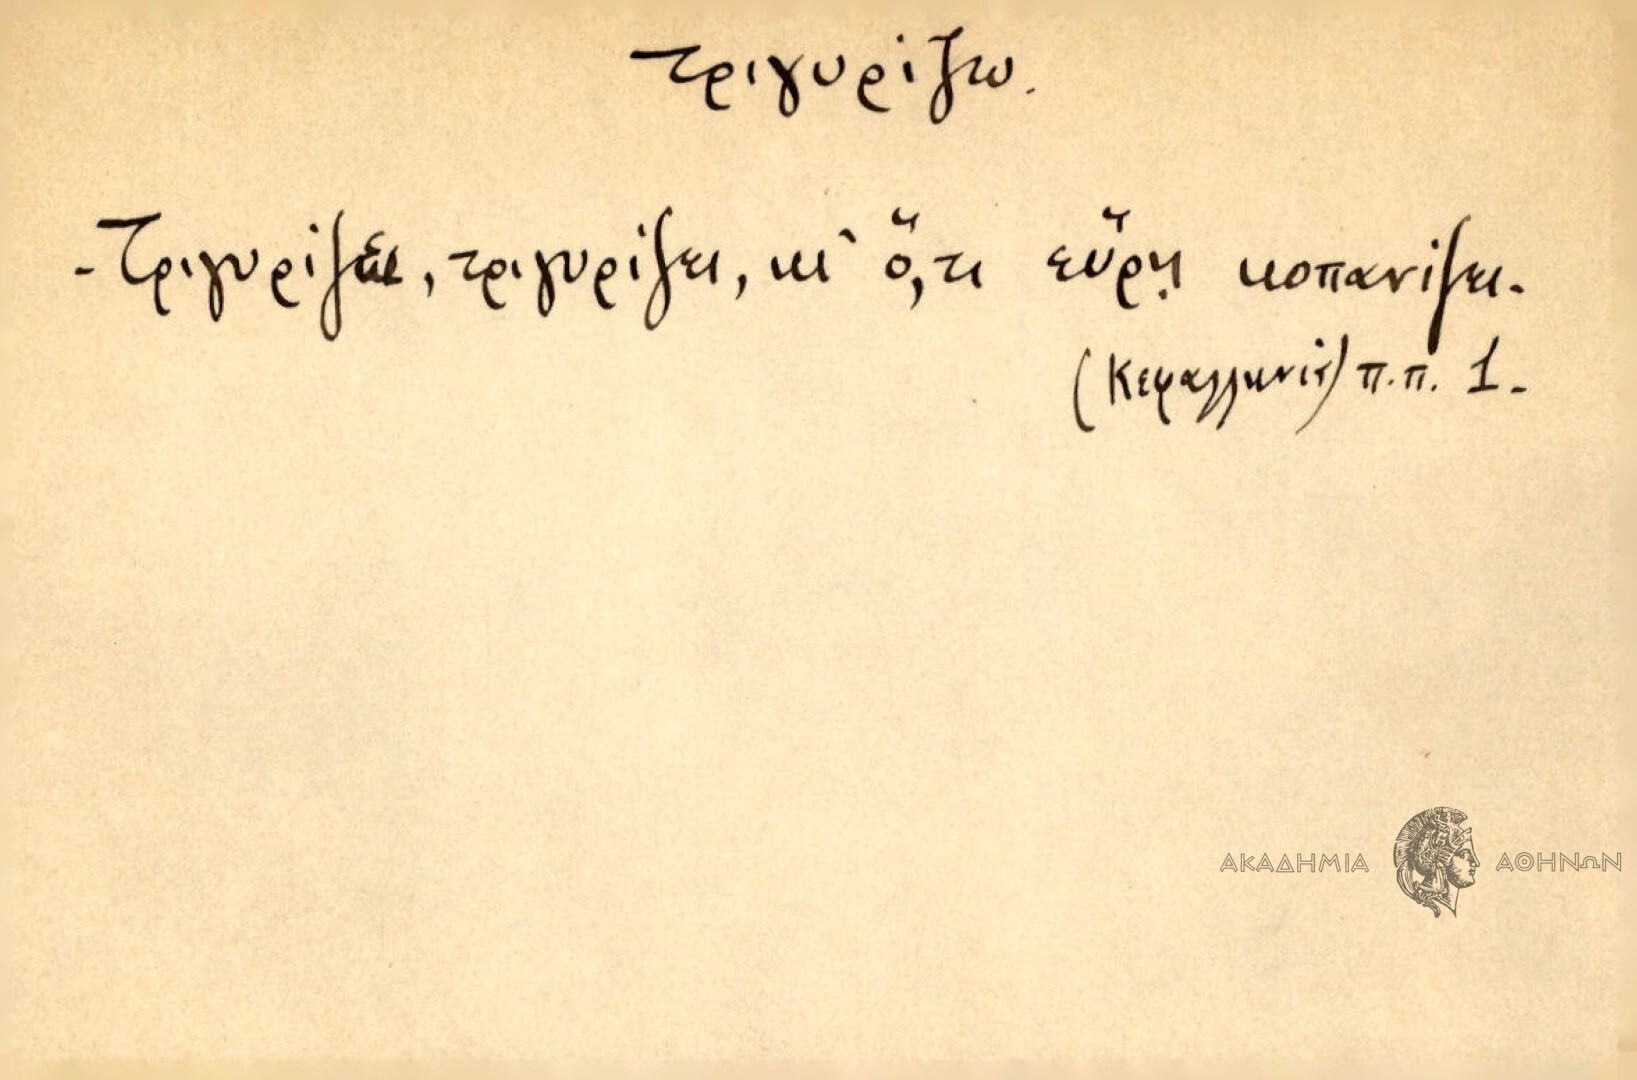 τριγυρίζω.
- Τριγυρίζει, τριγυρίζει, κι' ὅ,τι εὕρῃ κοπανίζει.
(Κεφαλληνίς) π.π. 1.
ΑΚΑΔΗΜΙΑ ΑΘΗΝΩΝ